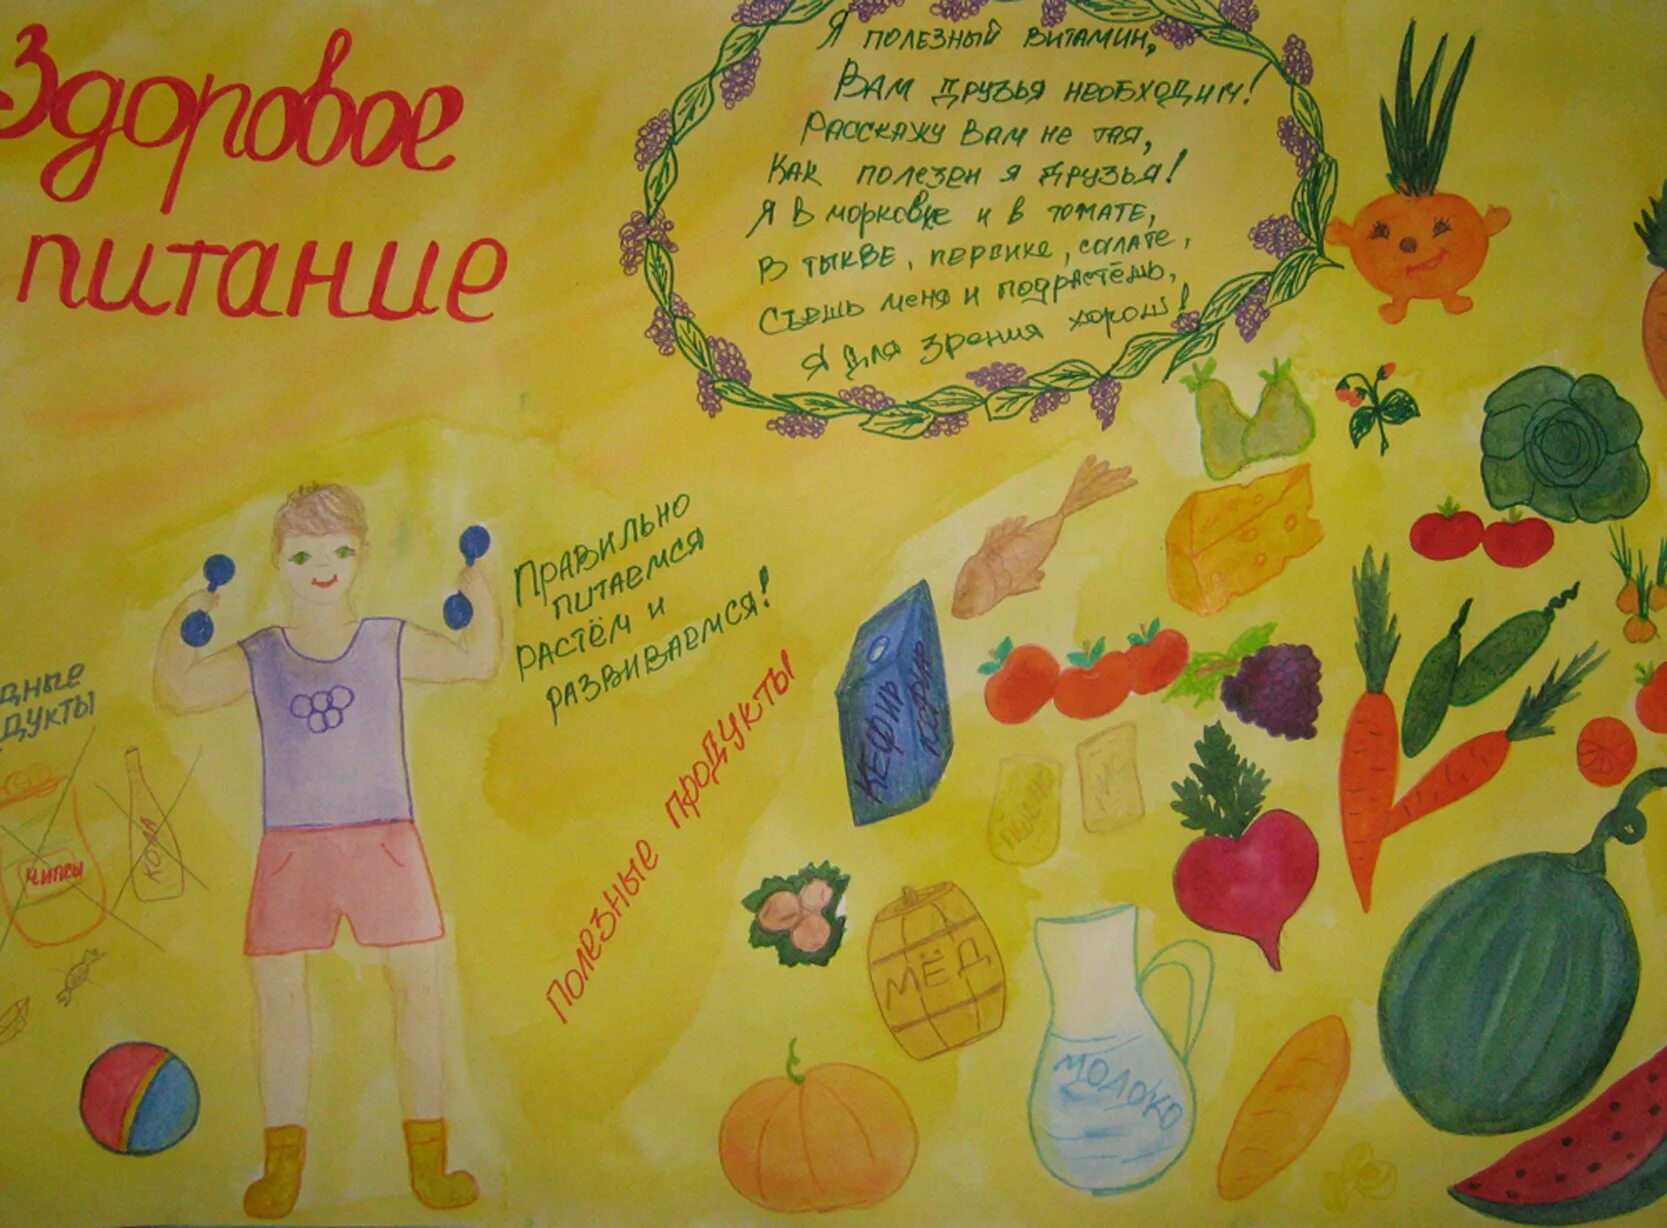 Здоровое
питание
Я полезный витамин,
Вам друзья необходим!
Расскажу вам не тая,
Как полезен я друзья!
Я в морковке и в томате,
в тыкве, персике, салате,
съешь меня и подрастёшь,
Я для зрения хорош!
Правильно
питаемся
растём и
развиваемся!
дные
дукты
чипсы
кола
Полезные продукты
кефир
кефир
мёд
молоко